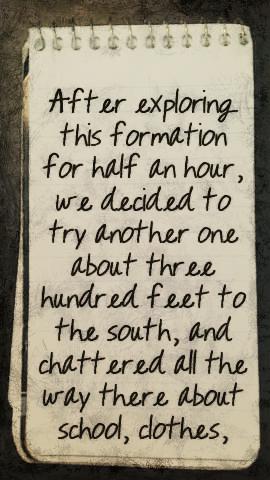 After exploring
this formation
for half an hour,
we decided to
try another one
about three
hundred feet to
the south, and
chattered all the
way there about
school, clothes,